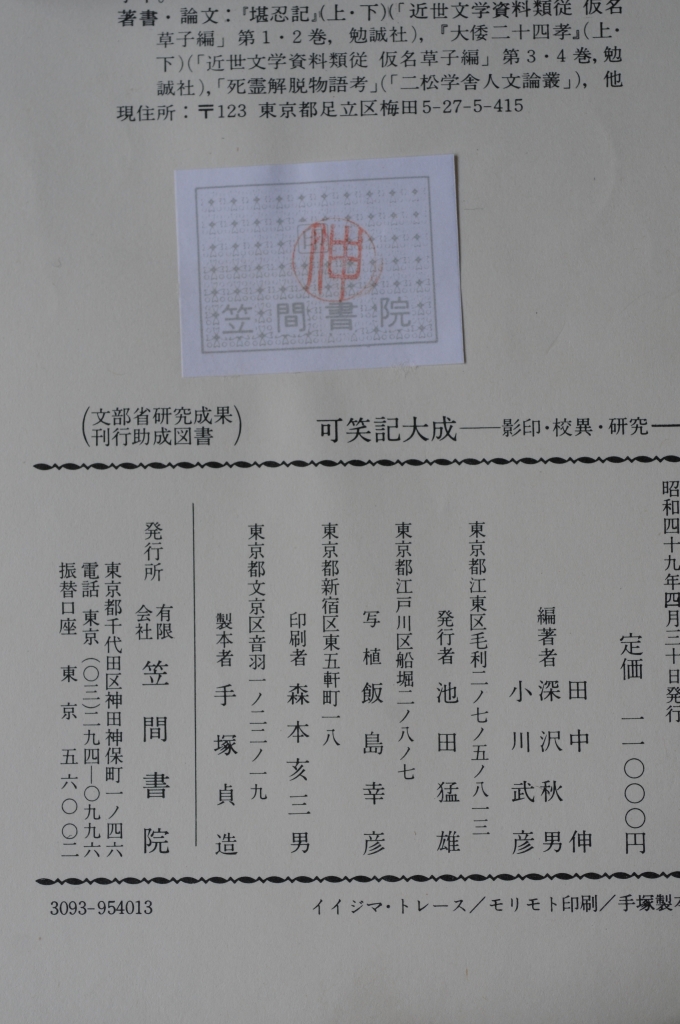 著書・論文：『堪忍記』（上・下）（「近世文学資料類従 仮名
草子編」第1・2巻，勉誠社），『大倭二十四孝』（上・
下）（「近世文学資料類従 仮名草子編」第3・4巻，勉
誠社），「死霊解脱物語考」（「二松学舎人文論叢」），他
現住所：〒123 東京都足立区梅田5-27-5-415
伸
笠間書院
（文部省研究成果
刊行助成図書）
可笑記大成――影印・校異・研究―
昭和四十九年四月三十日発行
定価 一一〇〇〇円
田中 伸
編著者 深沢秋男
小川武彦
東京都江東区毛利二ノ七ノ五ノ八一三
発行者 池田猛雄
東京都江戸川区船堀二ノ八ノ七
写植 飯島幸彦
東京都新宿区東五軒町一八
印刷者 森本亥三男
東京都文京区音羽一ノ二二ノ一九
製本者 手塚貞造
発行所 有限会社 笠間書院
東京都千代田区神田神保町一ノ四六
電話 東京（〇三）二九四―〇九九六
振替口座 東京 五六〇〇二
3093-954013
イイジマ・トレース／モリモト印刷／手塚製本